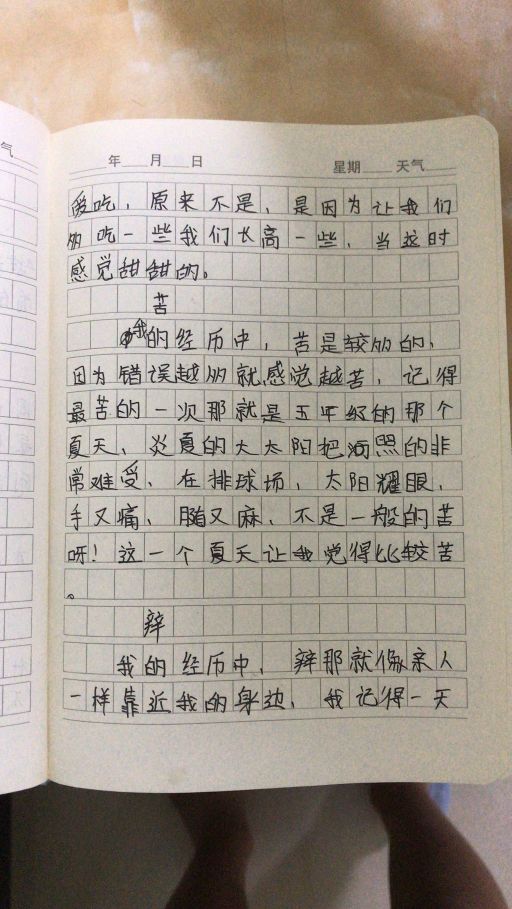 气
年 月 日 星期 天气
爱吃，原来不是，是因为让我们
多吃一些我们长高一些，当时
感觉甜甜的。
苦
我的经历中，苦是较多的，
因为错误越多就感觉越苦，记得
最苦的一次那就是五年级的那个
夏天，炎夏的大太阳把照的非
常难受，在排球场，太阳耀眼，
手又痛，又麻，不是一般的苦
呀！这一个夏天让我觉得比较苦
。
辣
我的经历中，辣那就像亲人
一样靠近我的身边，我记得一天